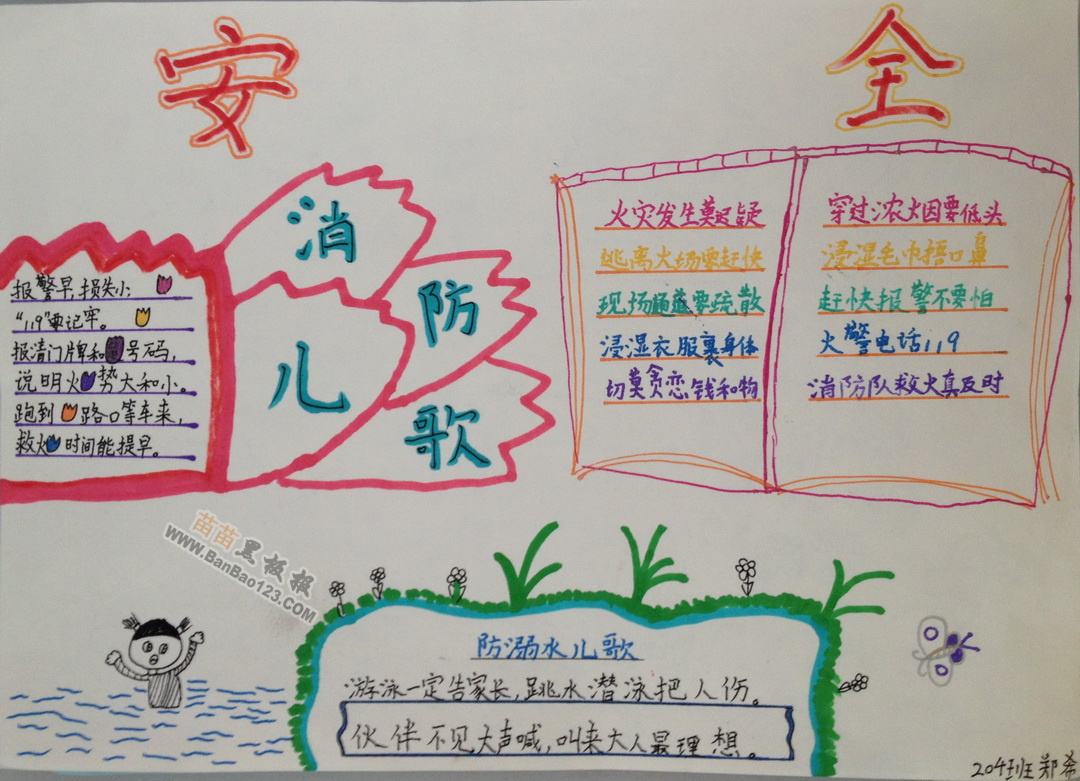 安 全
消
防
儿
歌
报警早,损失小;
“119”要记牢。
报清门牌和号码,
说明火势大和小。
跑到路口等车来,
救火时间能提早。
火灾发生莫迟疑
逃离火场要赶快
现场 要疏散
浸湿衣服裹身体
切莫贪恋钱和物
穿过浓烟要低头
浸湿毛巾捂口鼻
赶快报警不要怕
火警电话119
消防队救火真及时
苗苗黑板报
www.BanBao123.COM
防溺水儿歌
游泳一定告家长,跳水潜泳把人伤。
伙伴不见大声喊,叫来大人最理想。
204班 郑希